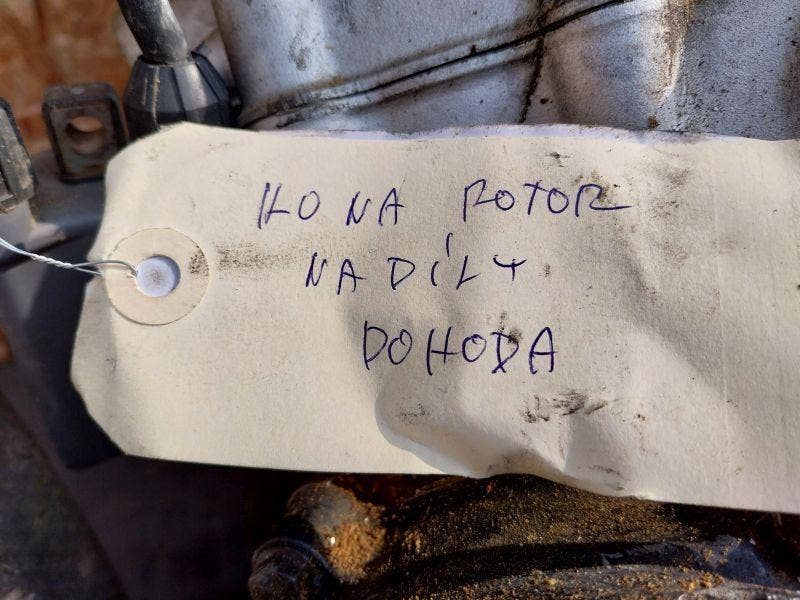 KONA ROTOR
NA DÍLY
DOHODA